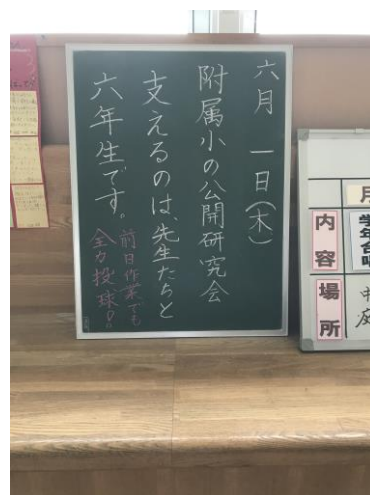 六月一日(木)
附属小の公開研究会
支えるのは、先生たちと
六年生です。
前日作業でも
全力投球!
月
内容
学年合唱
場所
中庭